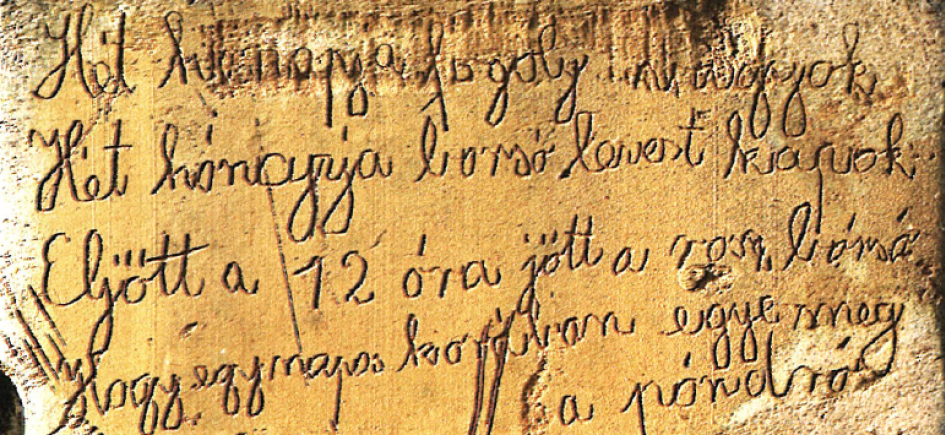 Hét hónapja fogoly vagyok
Hét hónapja borsó levest kapok
Eljött a 12 óra jött a rosz borsó
Hogy egynapos korában egye meg
a póndró